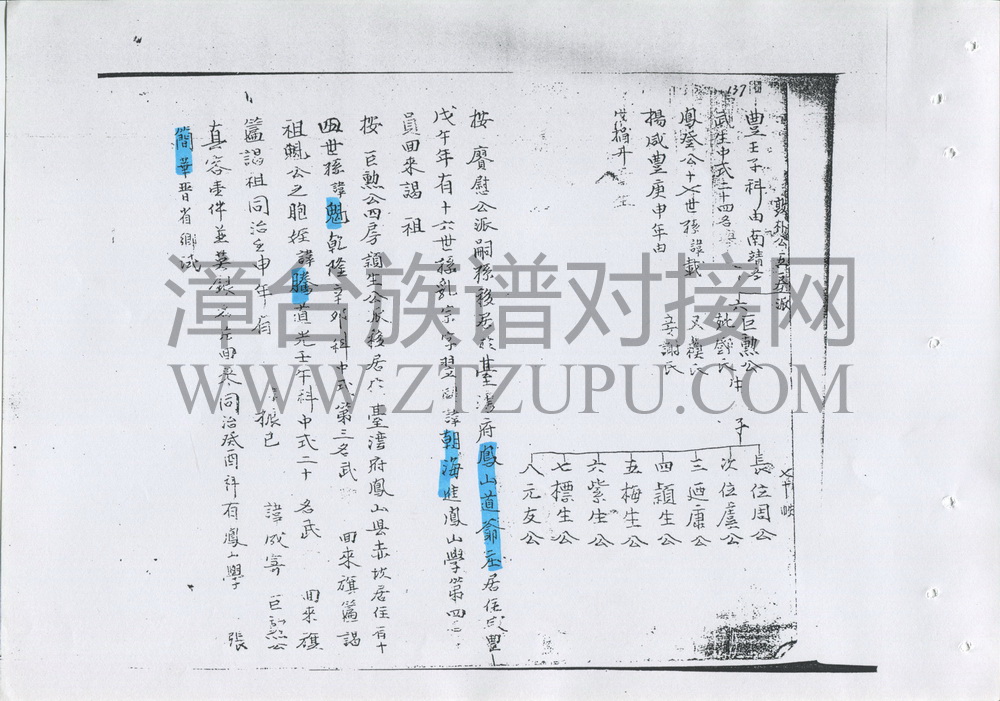 137
豊壬子科由南靖
武生中式二十四名
鳳發公十七世孫諱載
揚咸豊庚申年由
六巨勲公
妣鄧氏
又
妾謝氏
子
長位周公
次位虞公
三廼庸公
四頴生公
五梅生公
六紫生公
七標生公
八元友公
按賡慰公派嗣孫移居於臺湾府鳳山道爺庄居住咸豊
戊午年有十六世孫乳宗字翌諱朝海進鳳山學第四
員回來謁祖
按巨勲公四房頴生公派移居於臺湾府鳳山县赤坎居住有十
四世孫諱魁乾隆辛卯科中式第三名武 回來旗匾謁
祖魁公之胞姪諱騰道光壬午科中式二十 名武 回來旗
匾謁祖同治壬申年有 振已 諱成寄 巨勲公
真容壹件並 回來同治癸酉科有鳳山學 張
簡華晋省鄉試
漳台族谱对接网
WWW.ZTZUPU.COM